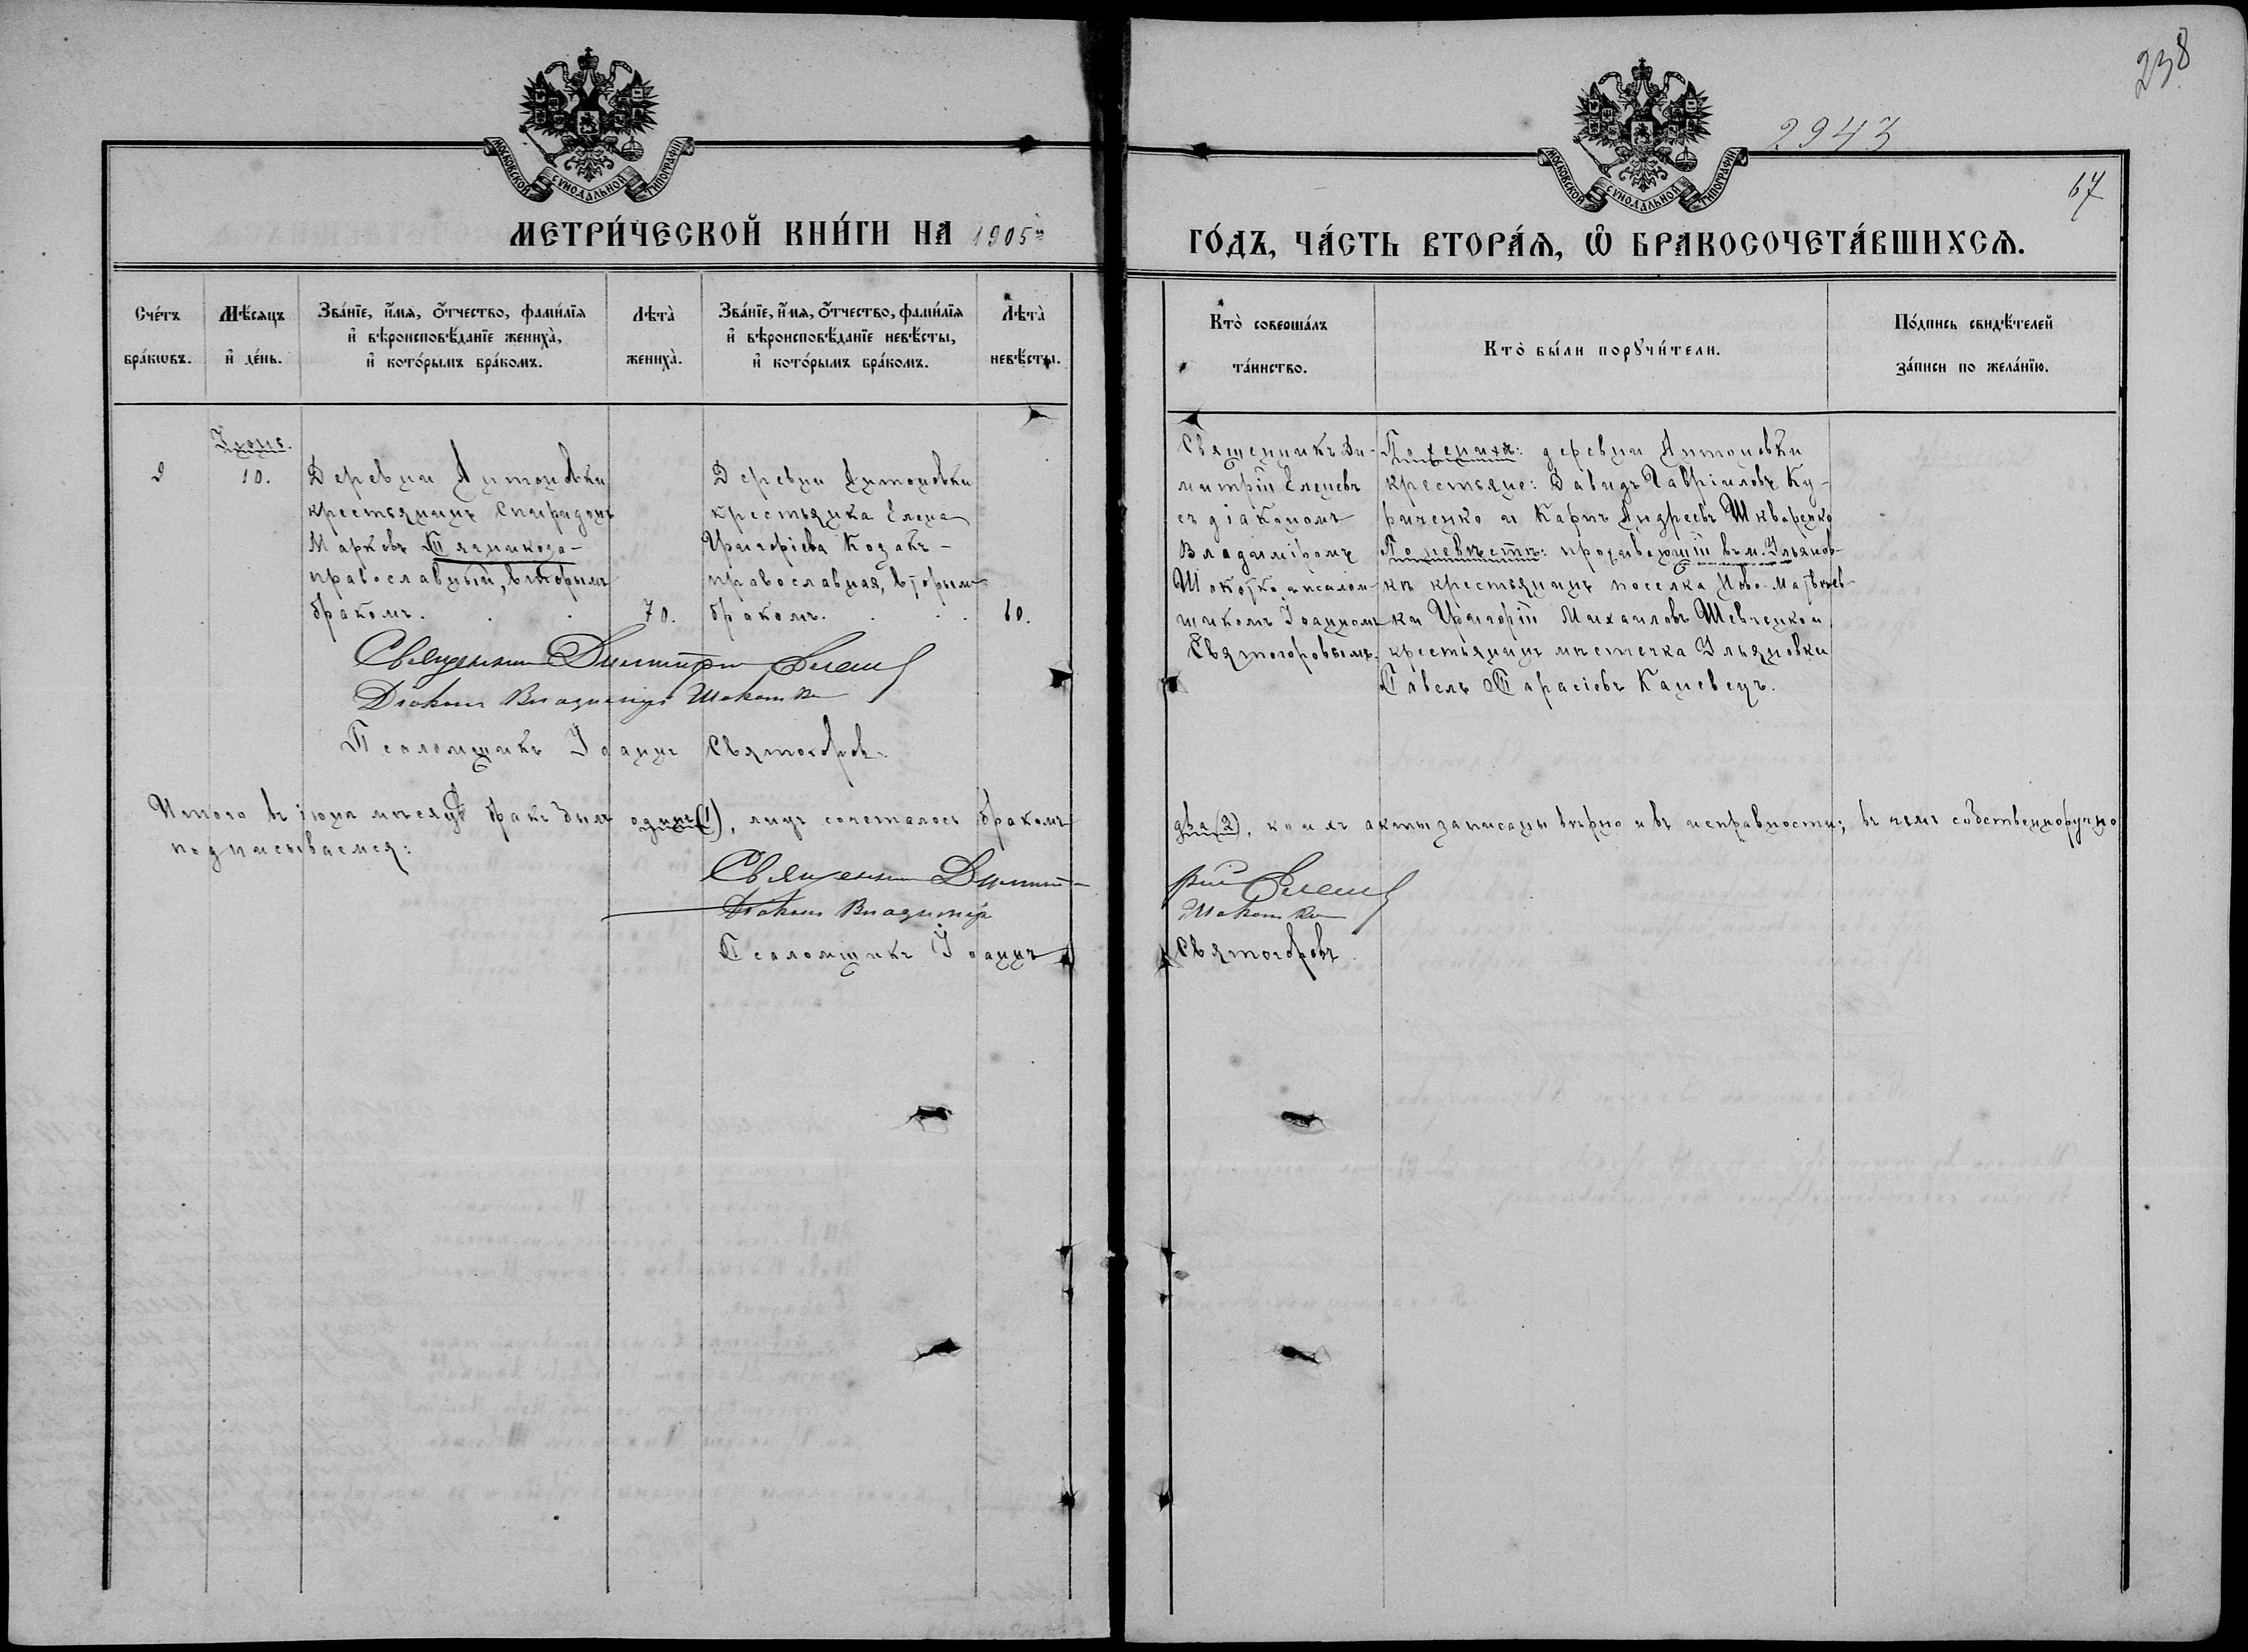 238
2943
67
МОСКОВСКОЙ СУНОДАЛЬНОЙ ТИПОГРАФІИ
МОСКОВСКОЙ СУНОДАЛЬНОЙ ТИПОГРАФІИ
МЕТРИ́ЧЕСКОЙ КНИ́ГИ НА 1905й
ГО́ДЪ, ЧА́СТЬ ВТОРА́Ѧ, Ѿ БРАКОСОЧЕТА́ВШИХСѦ.
Сче́тъ
бра́кѡвъ.
Мѣ́сяцъ
и҆ де́нь.
Зва́нїе, и҆́мя, ѻ҆́тчество, фами́лїя
и҆ вѣроисповѣ́данїе жениха̀,
и҆ кото́рымъ бра́комъ.
Лѣта̀
жениха̀.
Зва́нїе, и҆́мя, ѻ҆́тчество, фами́лїя
и҆ вѣроисповѣ́данїе невѣ́сты,
и҆ кото́рымъ бра́комъ.
Лѣта̀
невѣ́сты.
Кто̀ соверша́лъ
та́инство.
Кто̀ бы́ли порꙋчи́тели.
По́дпись свидѣ́телей
за́писи по жела́нїю.
Іюнь.
2
10.
Деревни Антоновки
крестьянинъ Спиридонъ
Марковъ
православный, вторымъ
бракомъ.
70.
Деревни Антоновки
крестьянка Елена
Григоріева Козакъ -
православная, вторым
бракомъ.
60.
Священникъ Ди-
митрій Еленевъ
съ діакономъ
Владиміромъ
Шокотко и псалом-
щикомъ Іоанномъ
Святогоровымъ.
По женихѣ: деревни Антоновки
крестьяне: Давидъ Гавріиловъ Ку-
риченко и Карпъ Андреевъ Шкваренко
По невѣстѣ: проживающій въ м. Ульянов-
кѣ крестьянинъ поселка Ново-Матвѣев-
ки Григорій Михаиловъ Шевченко и
крестьянинъ мѣстечка Ульяновки
Павелъ Тарасіевъ Каневецъ.
Священникъ Димитрій Еленев
Діаконъ Владиміръ Шокотко
Псаломщикъ Іоаннъ Святогоровъ
Итого въ іюнѣ мѣсяцѣ бракъ былъ одинъ (1), лицъ сочеталось бракомъ два (2), коихъ акты записаны вѣрно и въ исправности; въ чемъ собственноручно
подписываемся:
Священникъ Димит-рій Еленев
Діаконъ Владиміръ Шокотко
Псаломщикъ Іоаннъ Святогоровъ